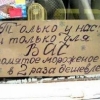 Только у нас
и только для
ВАС
помятое мороженое
в 2 раза дешевле